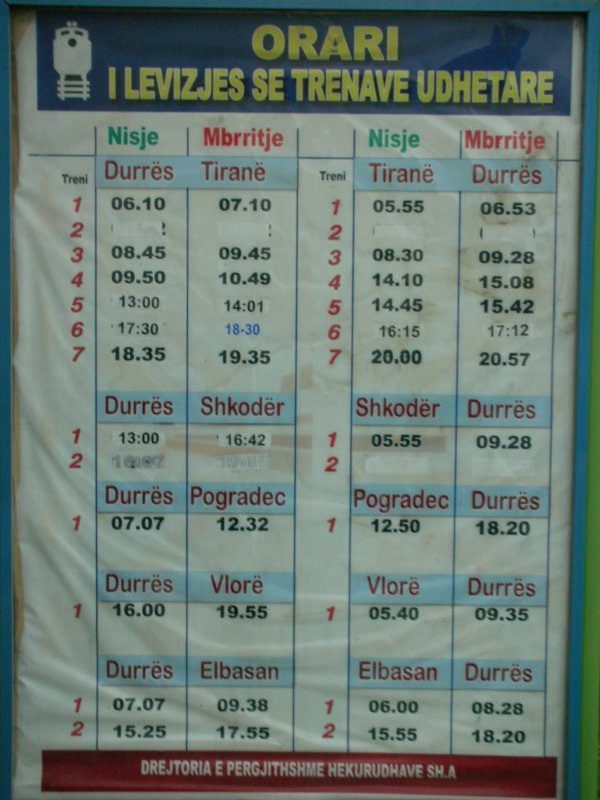 ORARI
I LEVIZJES SE TRENAVE UDHETARE
Nisje Mbrritje Nisje Mbrritje
Treni Durrës Tiranë Treni Tiranë Durrës
1 06.10 07.10 1 05.55 06.53
2 2
3 08.45 09.45 3 08.30 09.28
4 09.50 10.49 4 14.10 15.08
5 13:00 14:01 5 14.45 15.42
6 17:30 18-30 6 16:15 17:12
7 18.35 19.35 7 20.00 20.57
Durrës Shkodër Shkodër Durrës
1 13:00 16:42 1 05.55 09.28
2 2
Durrës Pogradec Pogradec Durrës
1 07.07 12.32 1 12.50 18.20
Durrës Vlorë Vlorë Durrës
1 16.00 19.55 1 05.40 09.35
Durrës Elbasan Elbasan Durrës
1 07.07 09.38 1 06.00 08.28
2 15.25 17.55 2 15.55 18.20
DREJTORIA E PERGJITHSHME HEKURUDHAVE SH.A